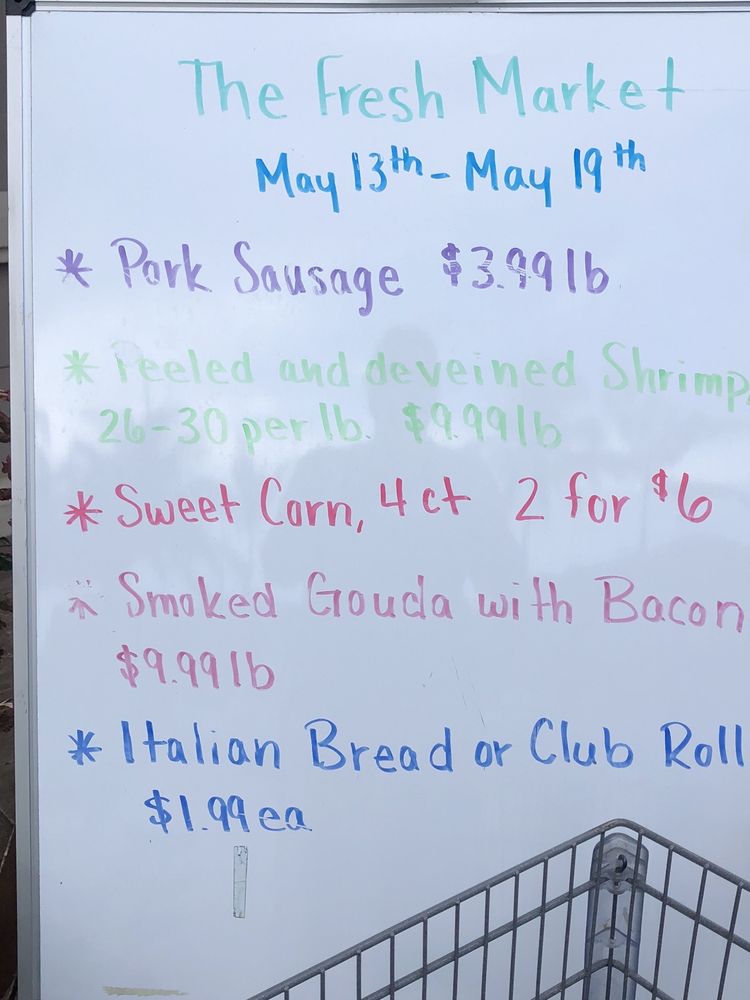 The Fresh Market
May 13th - May 19th
* Pork Sausage $3.99 lb
* Peeled and deveined Shrimp,
26-30 per lb. $9.99 lb
* Sweet Corn, 4 ct 2 for $6
* Smoked Gouda with Bacon
$9.99 lb
* Italian Bread or Club Roll
$1.99 ea